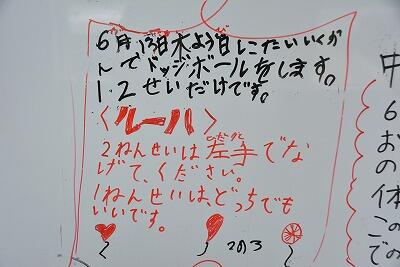 6月13日木よう日にたいいくか
んでドッジボールをします。
1.2せいだけです。
<ルール>
2ねんせいは左手でな
げて、ください。
1ねんせいは、どっちでも
いいです。
2の3
中
6
お
の
体
この
で